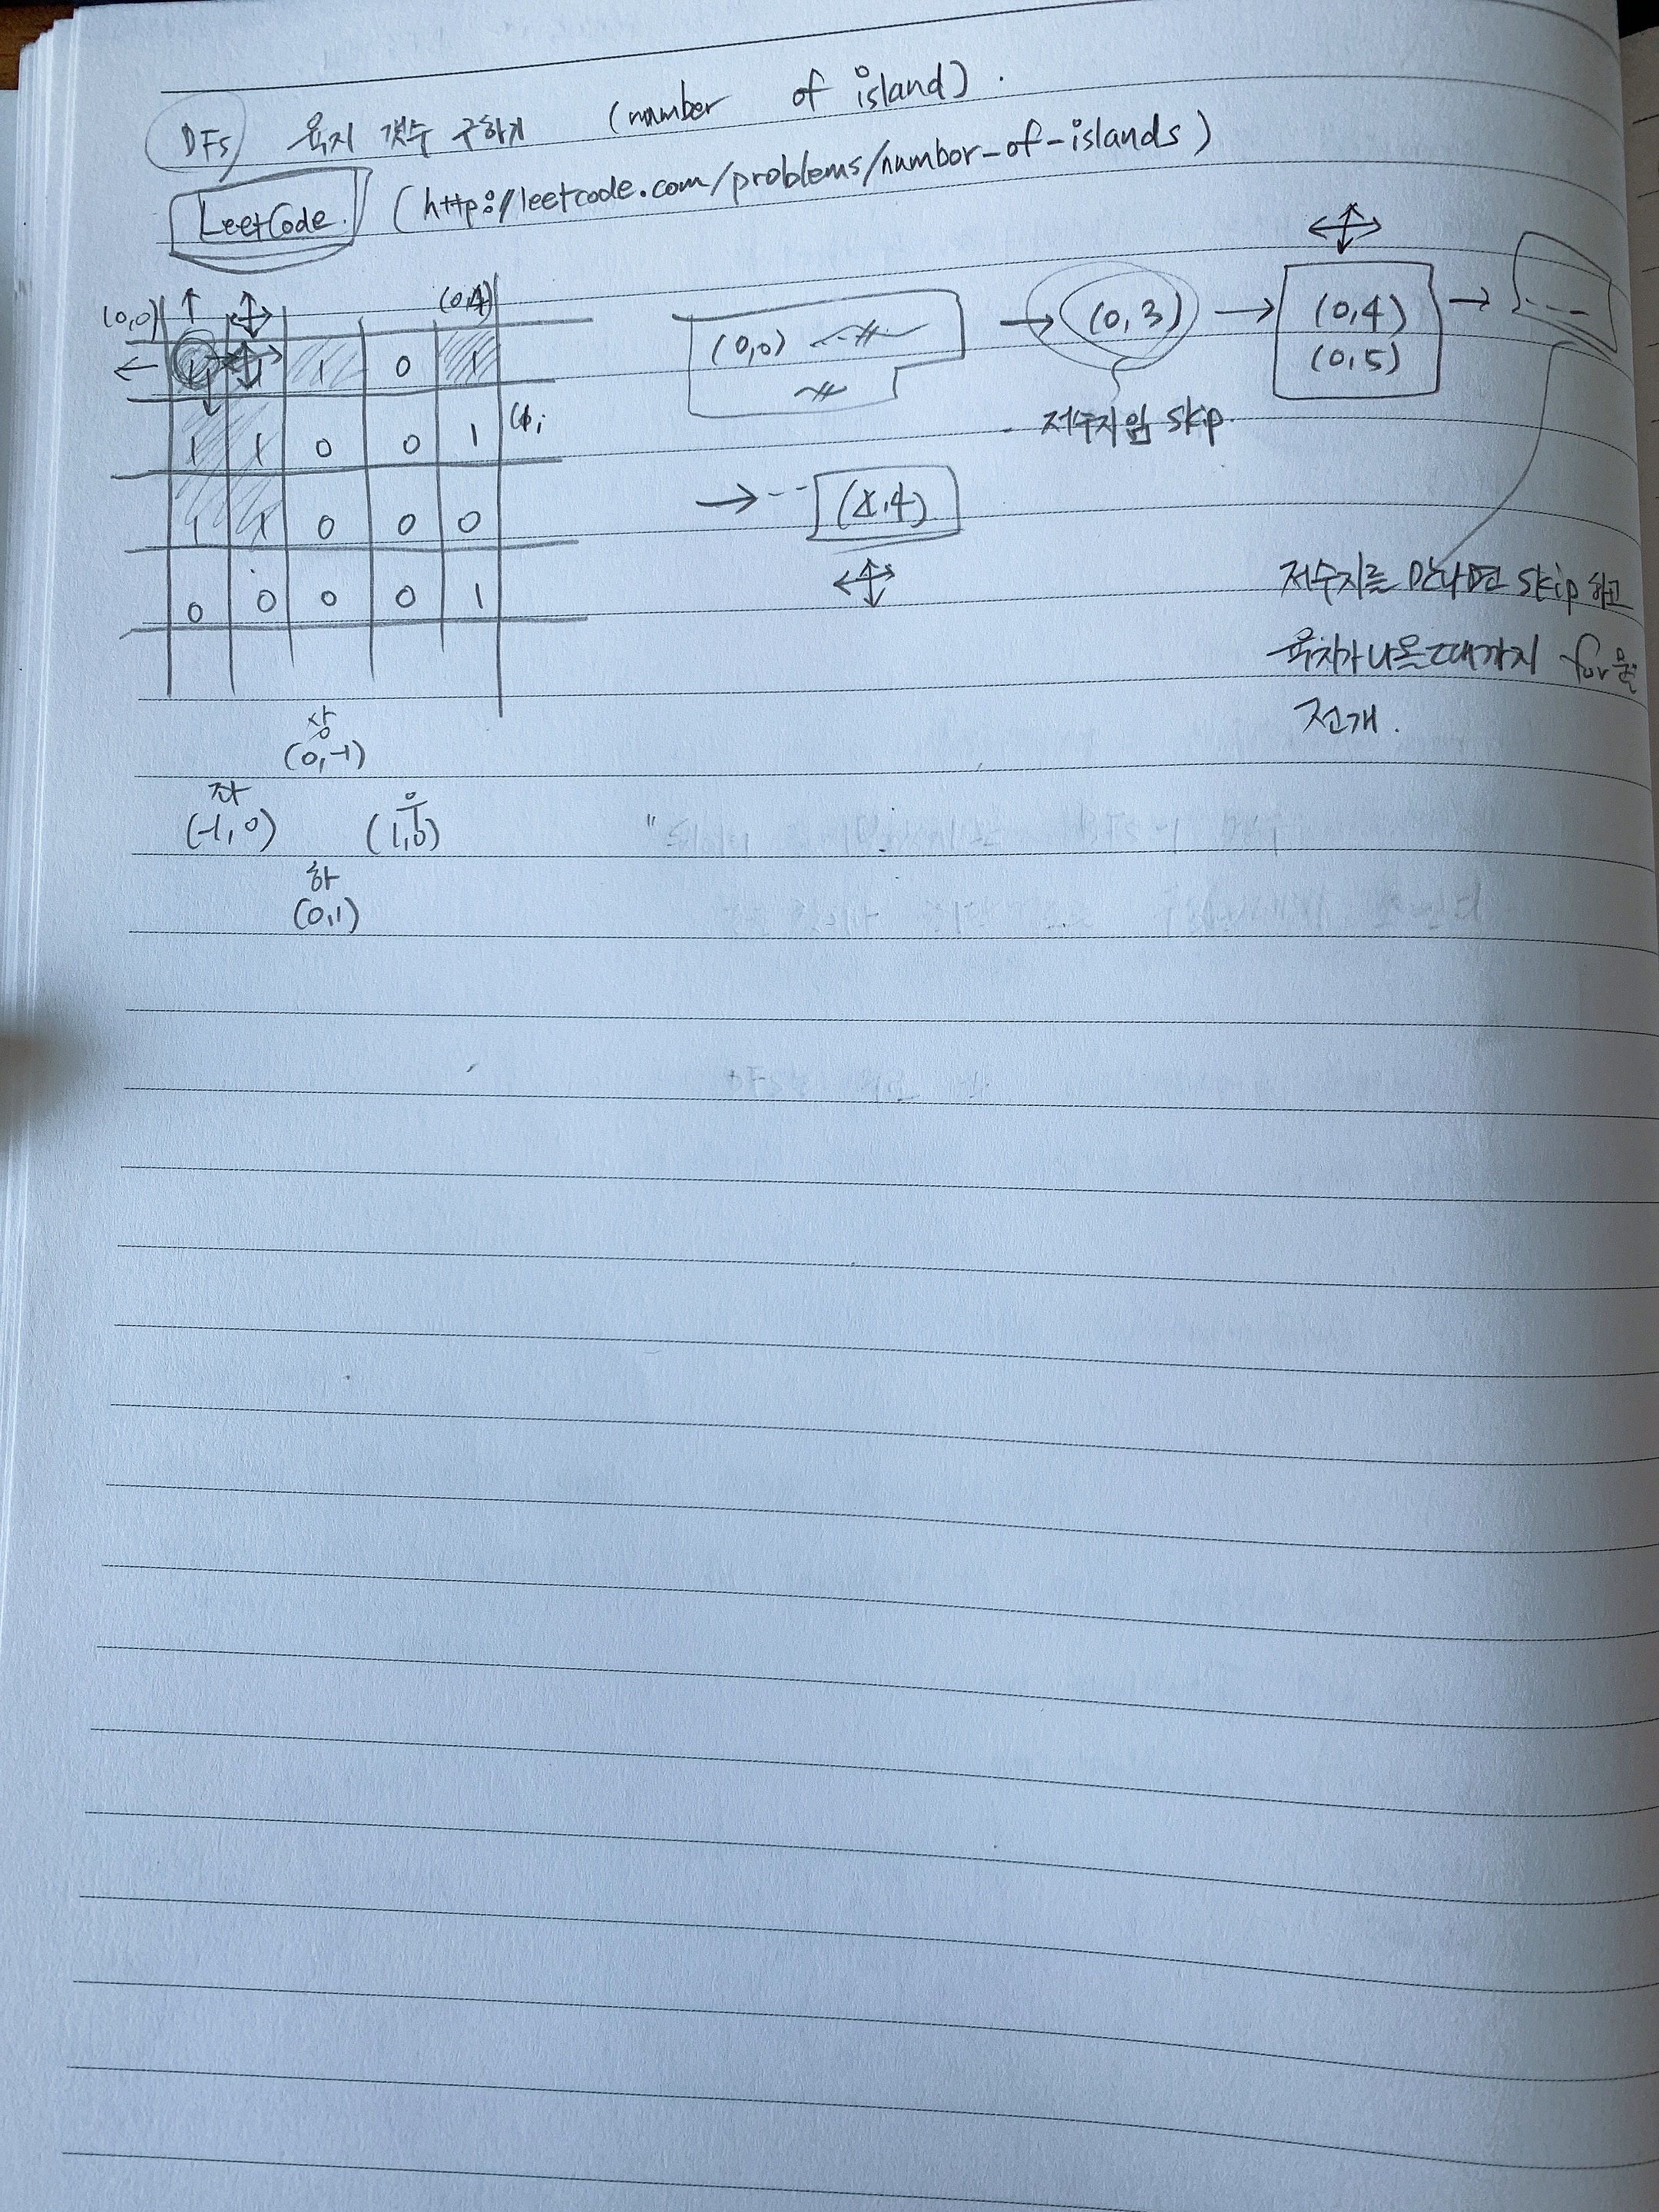 DFS 육지 갯수 구하기 (number of island).
LeetCode. (http://leetcode.com/problems/number-of-islands)
(0,0) (0,4)
1 1 1 0 1
1 1 0 0 1
1 1 0 0 0
0 0 0 0 1
(0,0) → (0,3) → (0,4) →
(0,5)
저수지임 skip.
→ -- (x,4)
저수지를 만나면 skip 하고
육지가 나올때까지 for을
전개.
상
(0,-1)
좌 우
(-1,0) (1,0)
하
(0,1)